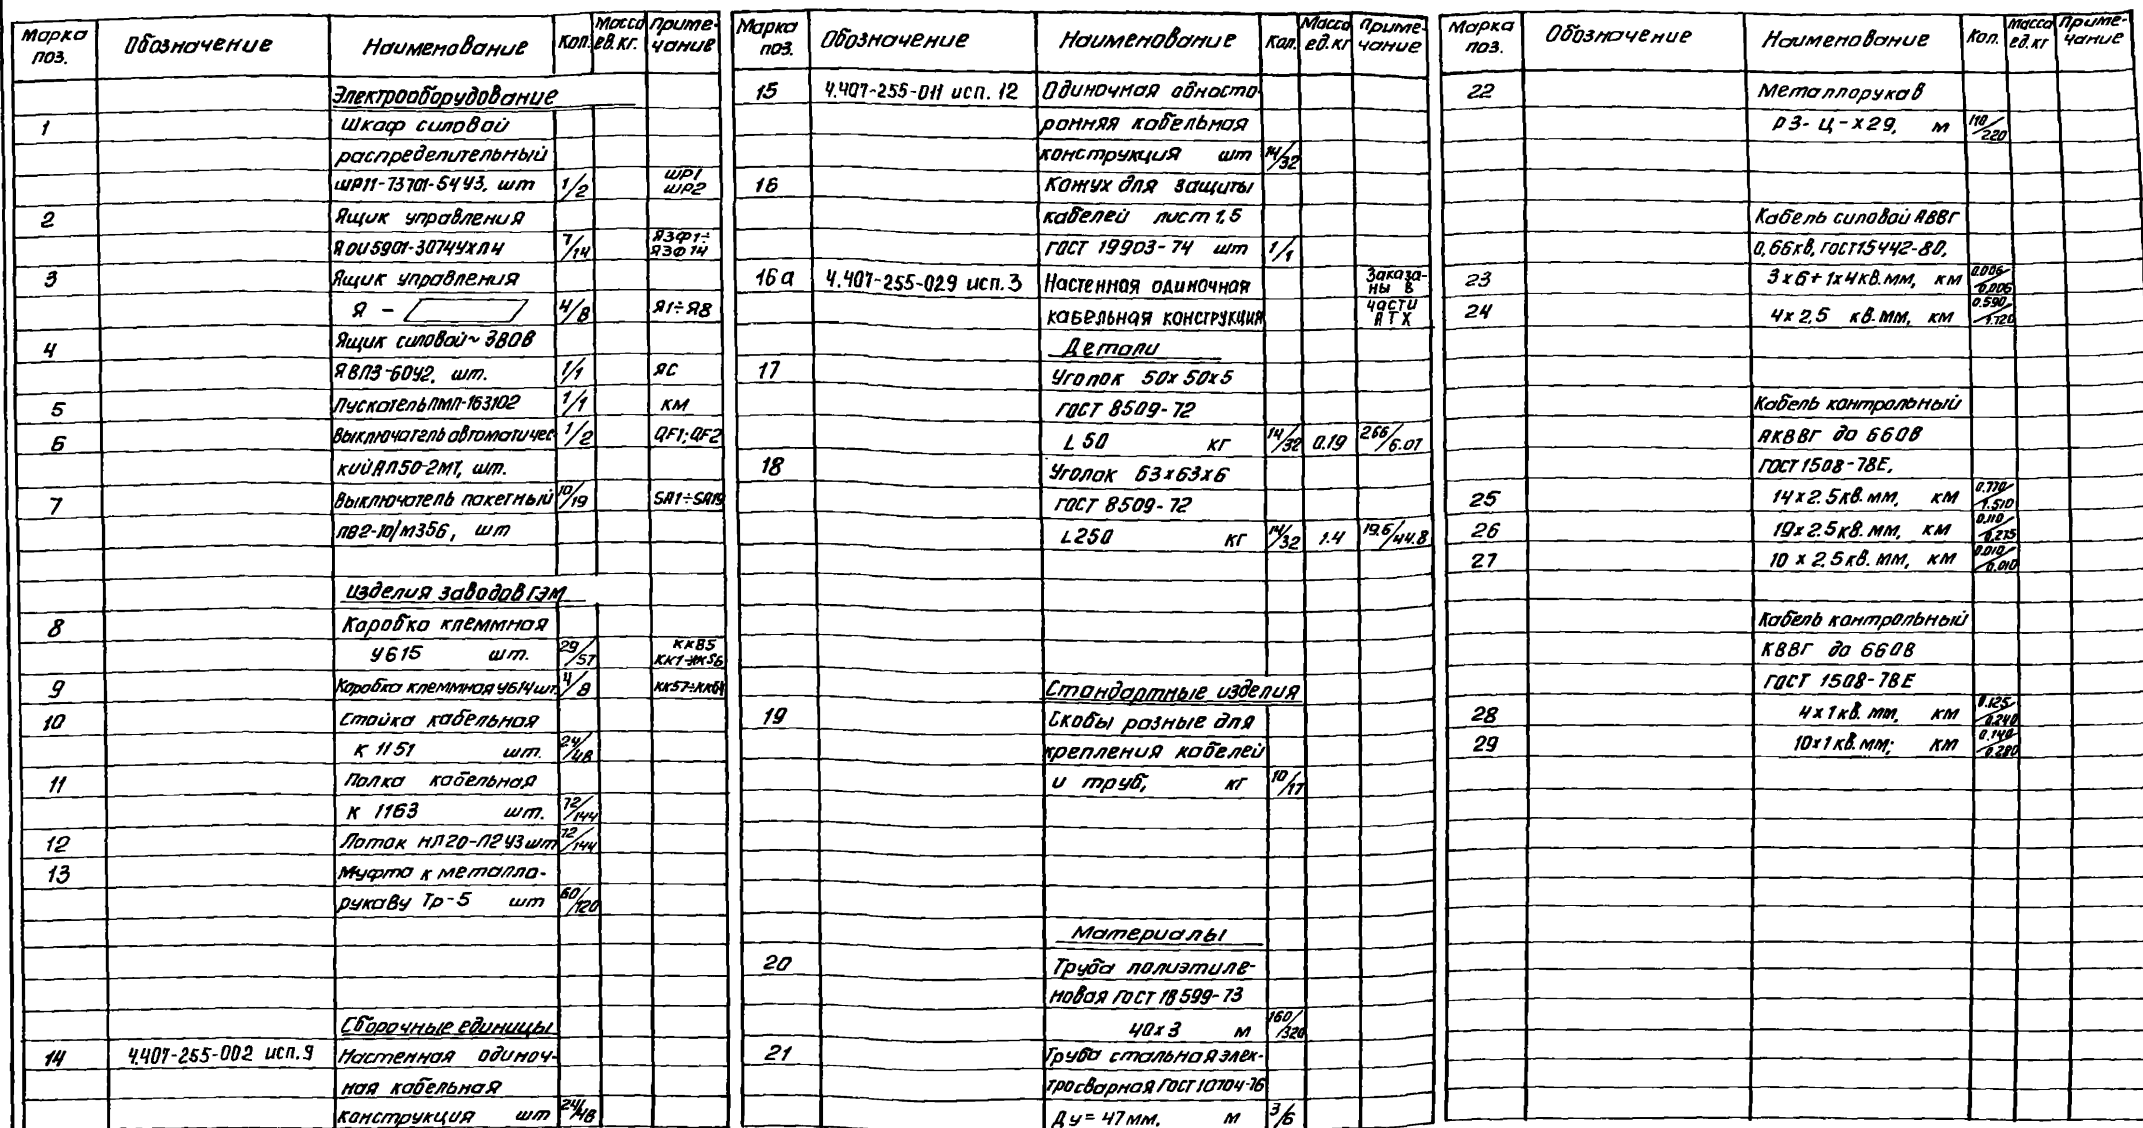 Марка поз. Обозначение Наименование Кол. Масса ед.кг. Приме-чание
Электрооборудование
1 Шкаф силовой
распределительный
ШР11-73701-54У3, шт 1/2 ШР1 ШР2
2 Ящик управления
ЯОИ5901-3074УХЛ4 7/14 ЯЗФ1÷ ЯЗФ14
3 Ящик управления
Я - 4/8 Я1÷Я8
4 Ящик силовой ~ 380В
ЯВПЗ-60У2, шт. 1/1 ЯС
5 Пускатель ПМЛ-163102 1/1 КМ
6 Выключатель автоматичес- 1/2 QF1; QF2
кий АП50-2МТ, шт.
7 Выключатель пакетный 10/19 SA1÷SA19
ПВ2-10/М356, шт
Изделия заводов ГЭМ
8 Коробка клеммная
У615 шт. 29/57 ККВ5 КК1÷КК56
9 Коробка клеммная У614 шт. 4/8 КК57÷КК64
10 Стойка кабельная
К 1151 шт. 24/48
11 Полка кабельная
К 1163 шт. 72/144
12 Лоток НЛ20-П2У3 шт 72/144
13 Муфта к металло-
рукаву Тр-5 шт 60/120
Сборочные единицы
14 4.407-255-002 исп.9 Настенная одиноч-
ная кабельная
конструкция шт 24/48
Марка поз. Обозначение Наименование Кол. Масса ед.кг Приме-чание
15 4.407-255-011 исп. 12 Одиночная односто
ронняя кабельная
конструкция шт 14/32
16 Кожух для защиты
кабелей лист 1,5
ГОСТ 19903-74 шт 1/1
16а 4.407-255-029 исп. 3 Настенная одиночная Заказа-ны в
кабельная конструкция части АТХ
Детали
17 Уголок 50х50х5
ГОСТ 8509-72
L 50 кг 14/32 0.19 2.66/6.07
18 Уголок 63х63х6
ГОСТ 8509-72
L250 кг 14/32 1.4 19.6/44.8
Стандартные изделия
19 Скобы разные для
крепления кабелей
и труб, кг 10/17
Материалы
20 Труба полиэтиле-
новая ГОСТ 18599-73
40х3 м 160/320
21 Труба стальная элек-
тросварная ГОСТ 10704-76
Ду= 47мм, м 3/6
Марка поз. Обозначение Наименование Кол. Масса ед.кг Приме-чание
22 Металлорукав
РЗ-Ц-Х29, м 110/220
Кабель силовой АВВГ
0,66кВ, ГОСТ15442-80,
23 3х6+1х4кв.мм, км 0.006/0.006
24 4х2,5 кв.мм, км 0.590/1.120
Кабель контрольный
АКВВГ до 660В
ГОСТ 1508-78Е,
25 14х2.5кв.мм, км 0.770/1.510
26 19х2.5кв.мм, км 0.110/0.215
27 10х2.5кв.мм, км 0.010/0.010
Кабель контрольный
КВВГ до 660В
ГОСТ 1508-78Е
28 4х1кв.мм, км 0.125/0.240
29 10х1кв.мм; км 0.140/0.280